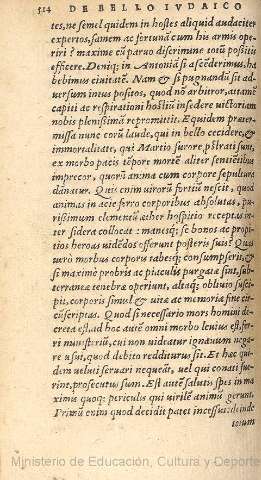 514 DE BELLO IVDAICO
tes, ne semel quidem in hostes aliquid audaciter
expertos, famem ac fortunã cum his armis ope-
riri? maxime cũ paruo discrimine totũ possitis
efficere. Deniq; in Antoniã si ascẽderimus, ha
bebimus ciuitatẽ. Nam & si pugnandũ sit ad-
uersum intus positos, quod nõ arbitror, attamẽ
capiti ac respirationi hostiũ insedere uictoriam
nobis plenissimã repromittit. Equidem præter-
missa nunc corũ laude, qui in bello cecidere, &
immortalitate, qui Martio furore pstrati sunt,
ex morbo pacis tẽpore morẽ aliter sentiẽtibus
imprecor, quorũ anima cum corpore sepultura
dãnatur. Quis enim uirorũ fortiũ nescit, quod
animas in acie ferro corporibus absolutas, pu-
rissimum elementũ æther hospitio receptas in-
ter sidera collocat: manesq; se bonos ac propi-
tios heroas uidẽdos offerunt posteris suis? Quas
uerò morbus corporis tabesq; consumpserit, &
si maximè probris ac piaculis purgatæ sint, sub-
terraneæ tenebræ operiunt, altaq; obliuio susci-
pit, corporis simul & uitæ ac memoriæ fine cir
cũscriptas. Quod si necessario mors homini de
creta est, ad hoc autẽ omni morbo leuius est, fer
ri ministeriũ, cui non uideatur ignauum nega-
re usui, quod debito redditurus sit. Et hæc qui-
dem ueluti seruari nequeãt, uel qui conati fue-
rint, prosecutus sum. Est autẽ salutis spes in ma
ximis quoq; periculis qui uirilẽ animũ gerunt.
Primũ enim quod decidit patet incessui: deinde
totum
Ministerio de Educación, Cultura y Deporte